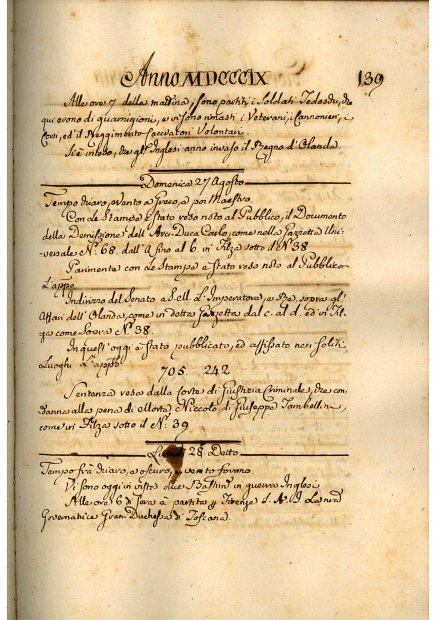 Anno MDCCCIX 139
Alle ore 7 della mattina, sono partiti i Soldati Tedeschi, che
qui erano di guarnigione, e vi sono rimasti i Veterani, i Cannonieri, i
Corsi, ed il Reggimento Cacciatori Volontari.
Si è inteso, che gl'Inglesi anno invaso il Regno d'Olanda.
Domenica 27 Agosto
Tempo chiaro, e vento a Greco, e poi Maestro.
Con le Stampe è stato reso noto al Pubblico, il Documento
della Demissione dell'Arci-Duca Carlo, come nella Gazzetta Uni-
versale N.º 68. dall'A fino al b. in Filza sotto il N.º 38
Parimenta con le Stampe è stato reso noto al Pubblico
L'appo.
Indirizzo del Senato a S.M. L'Imperatore, e Re, sopra gl'
Affari dell'Olanda, come in detta Gazzetta dal c. al d. ed in Fil-
za come sovra N.º 38.
In quest'oggi è stato pubblicato, ed affissato nei soliti
Luoghi L'appo.
705. 242
Sentenza resa dalla Corte di Giustizia Criminale, che con-
danna alla pena di Morte Niccolò di Giuseppe Tambellini,
come in Filza sotto il N.º 39
28. Detto
Tempo frà chiaro, e oscuro, e vento forano
Vi sono oggi in vista due Bastim.ti in guerra Inglesi
Alle ore 6 di sera è partita p Firenze S. A. I. La nra
Governatrice Gran. Duchessa di Toscana.